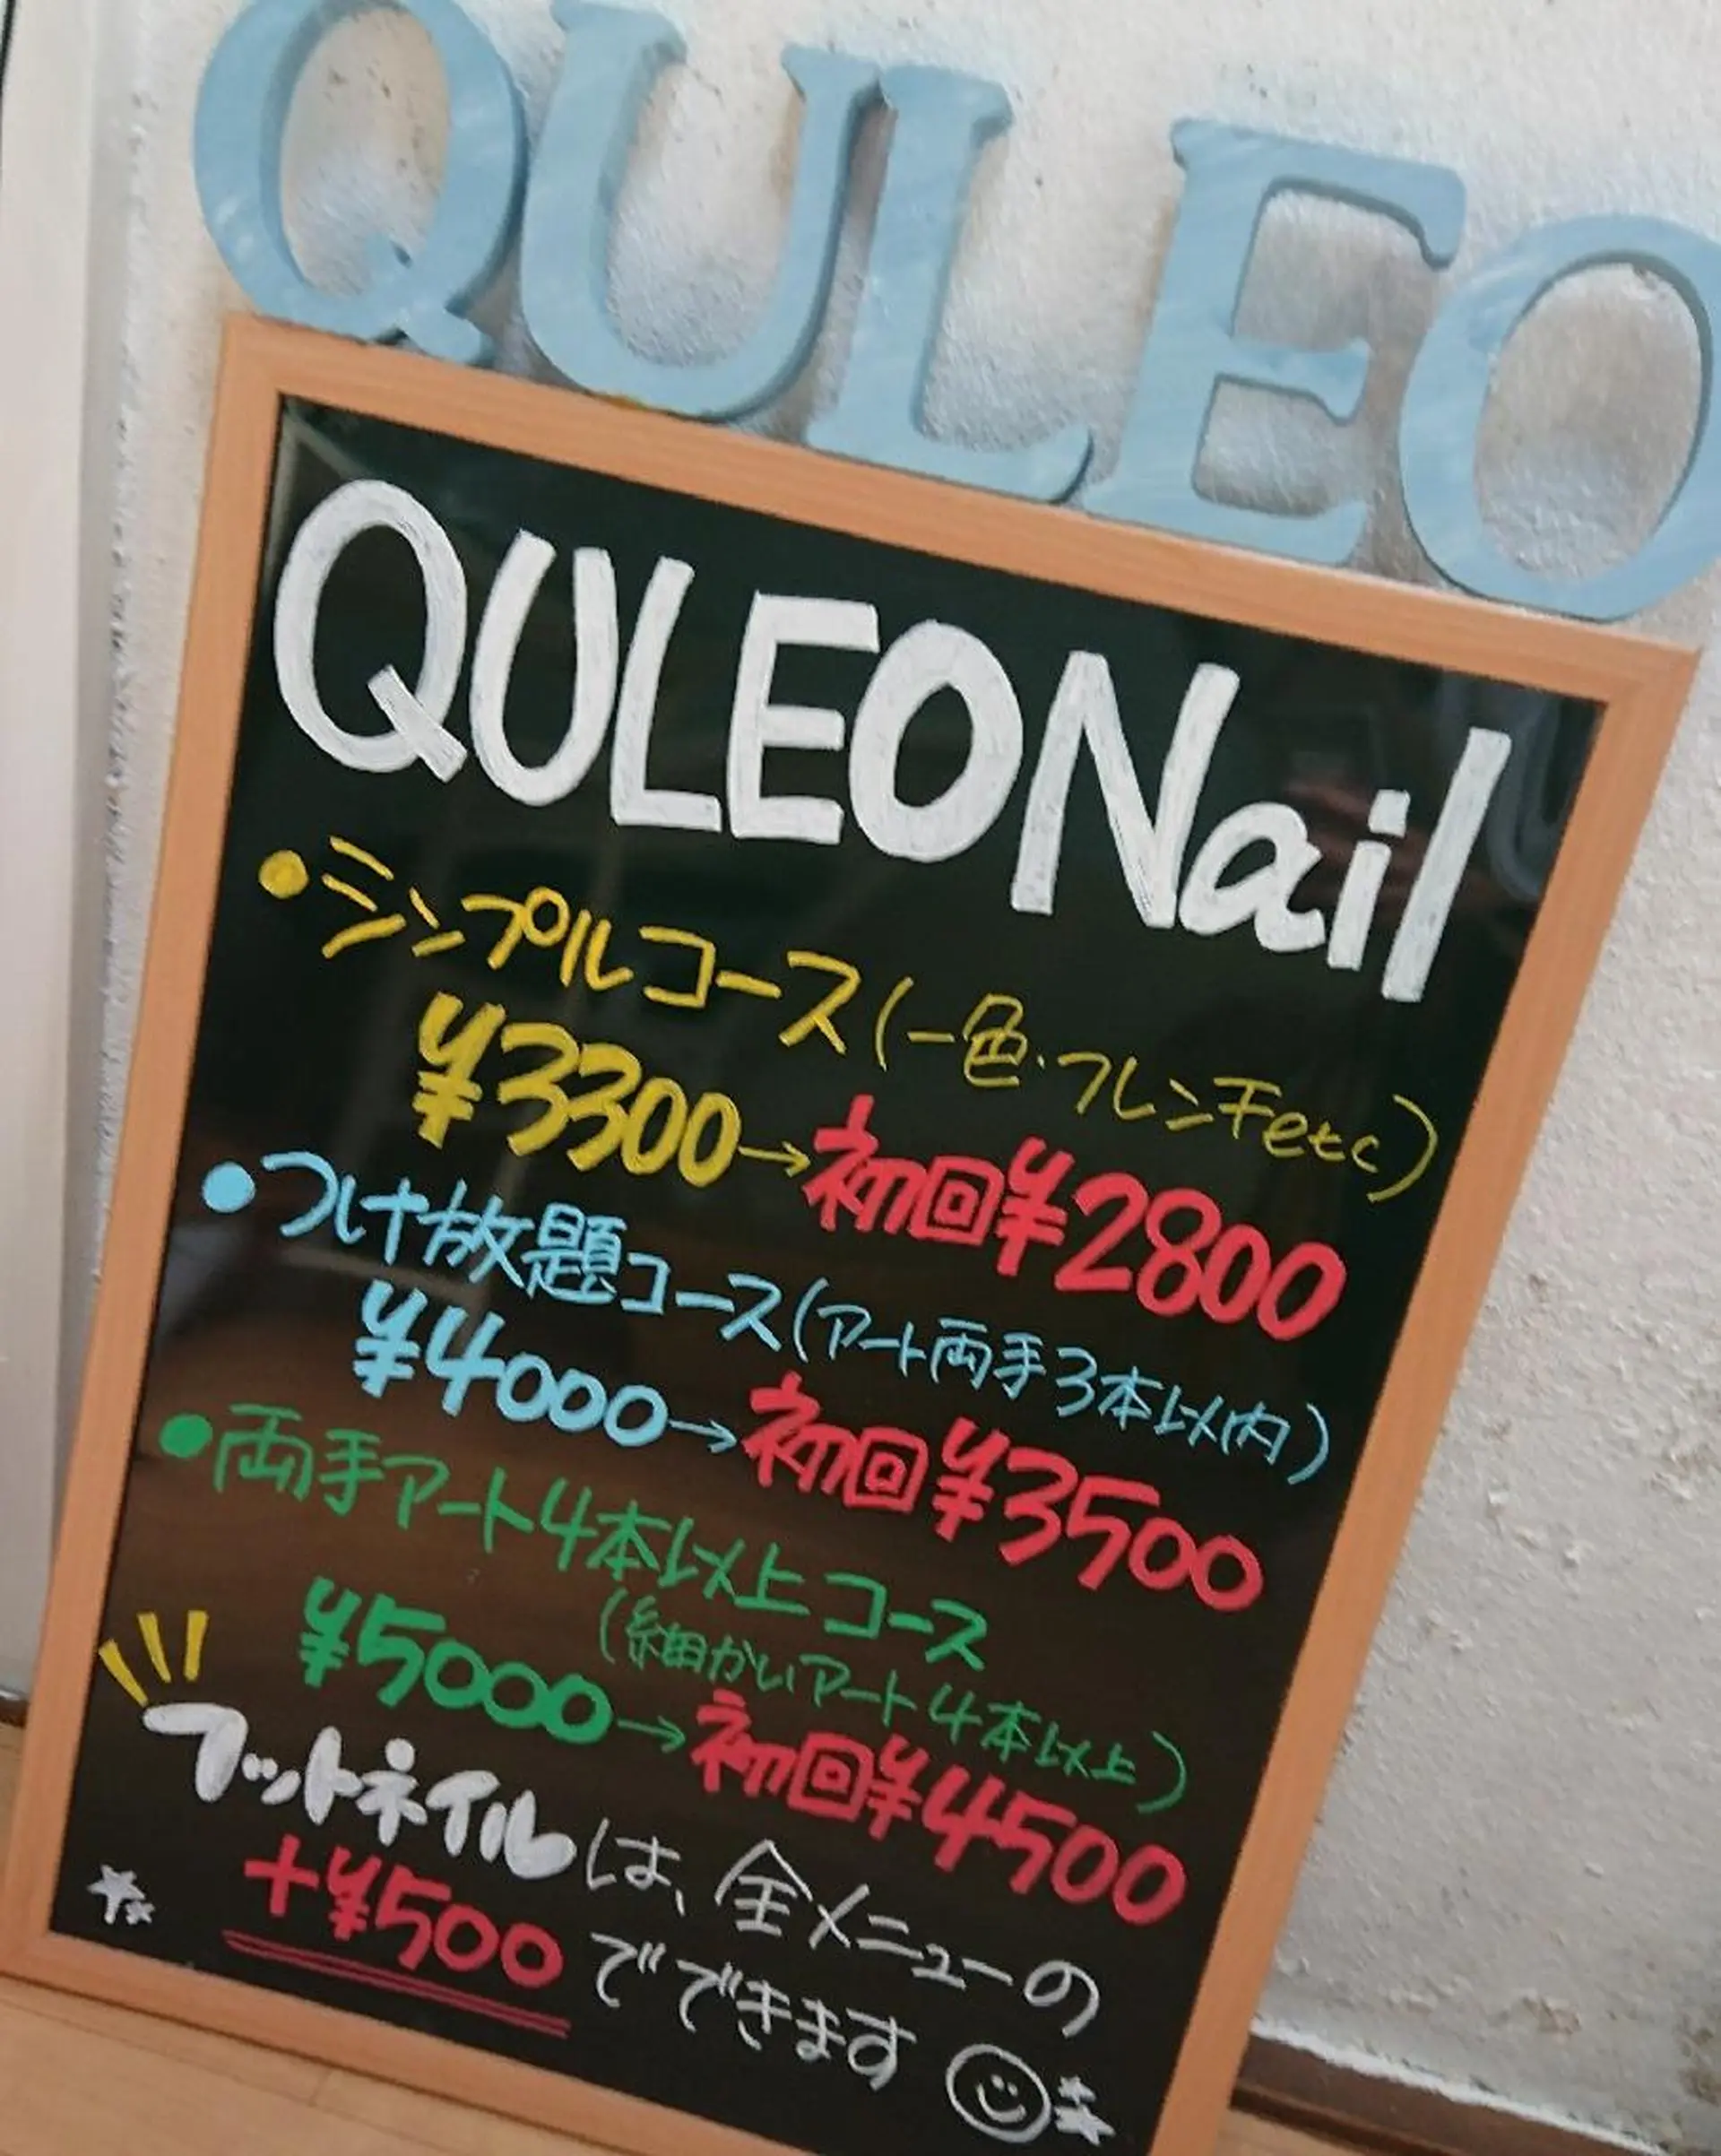 QULEO
QULEO Nail
●シンプルコース(一色・フレンチetc)
¥3300→初回¥2800
●つけ放題コース(アート両手3本以内)
¥4000→初回¥3500
●両手アート4本以上コース
(細かいアート4本以上)
¥5000→初回¥4500
フットネイルは、全メニューの
+¥500でできます